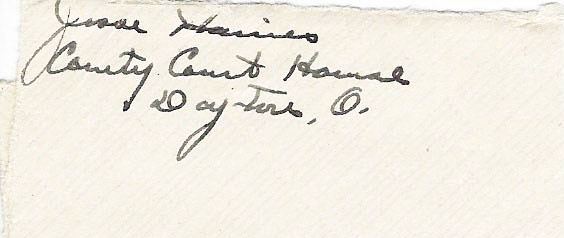 Jesse Haines
County Court House
Dayton, O.